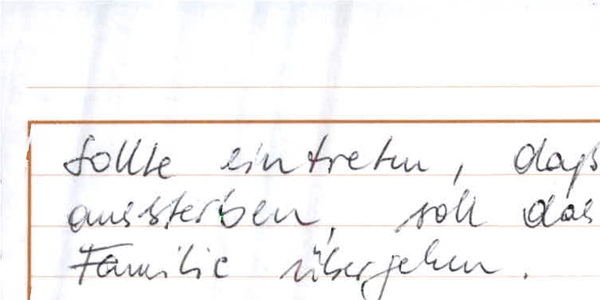 Sollte eintreten, daß
aussterben, soll das
Familie übergehen.